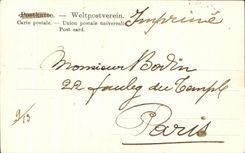 Postkarte. – Weltpostverein.
Carte postale. – Union postale universelle.
Post card.
Imprimé
Monsieur Bodin
22 faubg du Templ
Paris
9/13